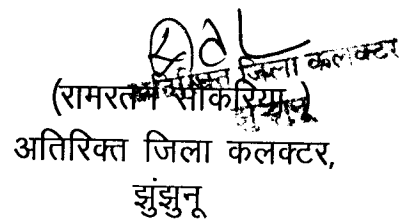 अतिरिक्त जिला कलक्टर
(रामरतन सौंकरिया)
अतिरिक्त जिला कलक्टर,
झुंझुनू